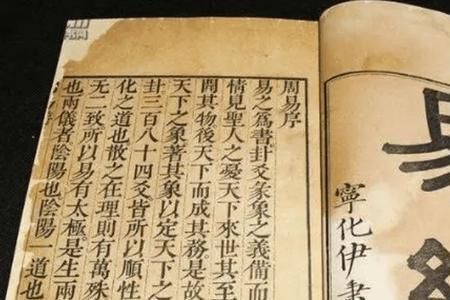 易
寧化伊
周易序
易之爲書卦爻彖象之義備而
情見聖人之憂天下來世其至
開其物後天下而成其務是故
天下之象著其象以定天下之
卦三百八十四爻皆所以順性
化之道也散之在理則有萬殊
无二致所以易有太極是生兩
也兩儀者陰陽也陰陽一道也